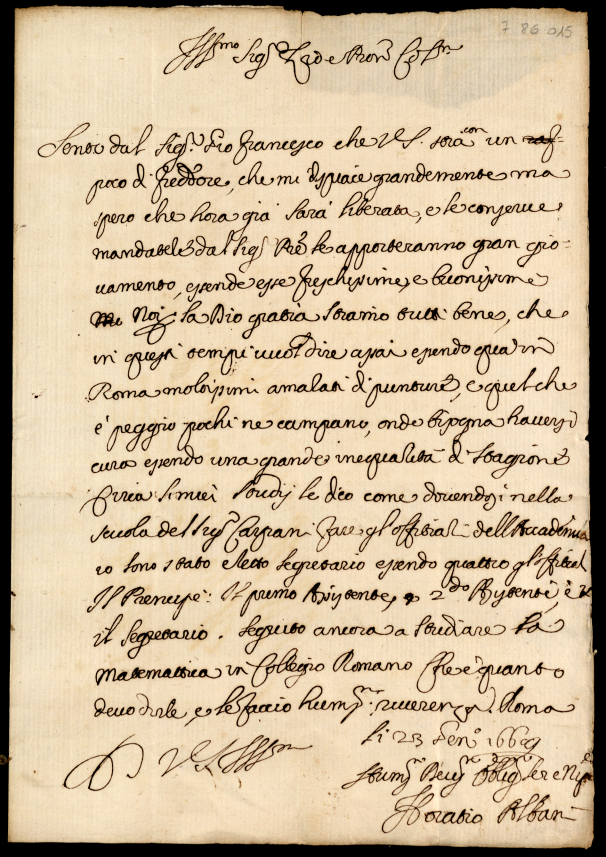 7 86 015
Ill.mo Sig.r Zio e Pron Col.mo
Sento dal Sig.r Zio Francesco che V.S. stia con un
poco di freddore, che mi dispiace grandemente ma
spero che hora già sarà liberata, e le conserve
mandatele dal Sig.r Pre le apporteranno gran gio-
vamento, essendo esse freschissime, e buonissime
Noi la Dio gratia stiamo tutti bene, che
in questi tempi vuol dire assai essendo qua in
Roma moltissimi amalati di punture, e quel che
è peggio pochi ne campano, onde bisogna haversi
cura essendo una grande inequalità di stagione
Circa li miei studij le dico come dovendosi nella
scuola del Sig.r Carpani fare gl'offitiali dell'Accademia
io sono stato eletto segretario essendo quattro gl'offitiali
Il Prencipe: Il primo Assistente, 2.do Assistente, e
il segretario. Seguito ancora a studiare la
Matematica in Collegio Romano che è quanto
devo dirle, e le faccio hum.ma riverenza. Roma
li 23 Gen.o 1669
D V.S. Ill.ma
Hum.o Dev.o Oblig.o Ser e Nip.e
Horatio Albani